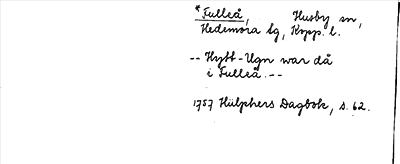 *Fulleå, Husby sn,
Hedemora lg, Kopp. l.
-- Hytt-Ugn war då
i Fulleå. --
1757 Hülphers Dagbok, s. 62.